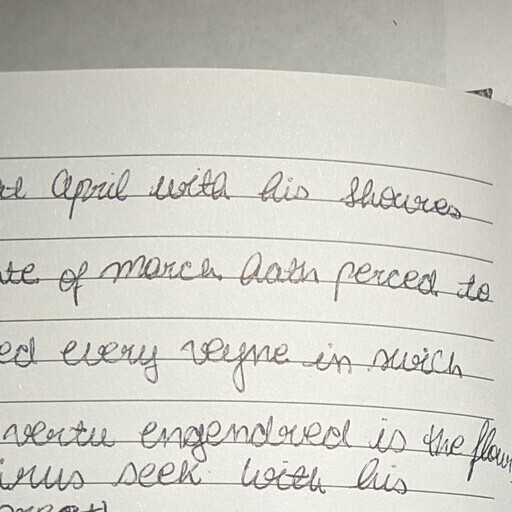 April with his shoures
of march hath perced to
ed every veyne in swich
vertu engendred is the flour
irus seek with his